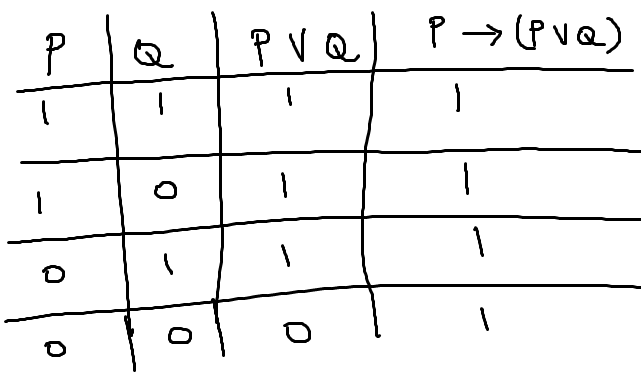 P Q P ∨ Q P → (P ∨ Q)
1 1 1 1
1 0 1 1
0 1 1 1
0 0 0 1